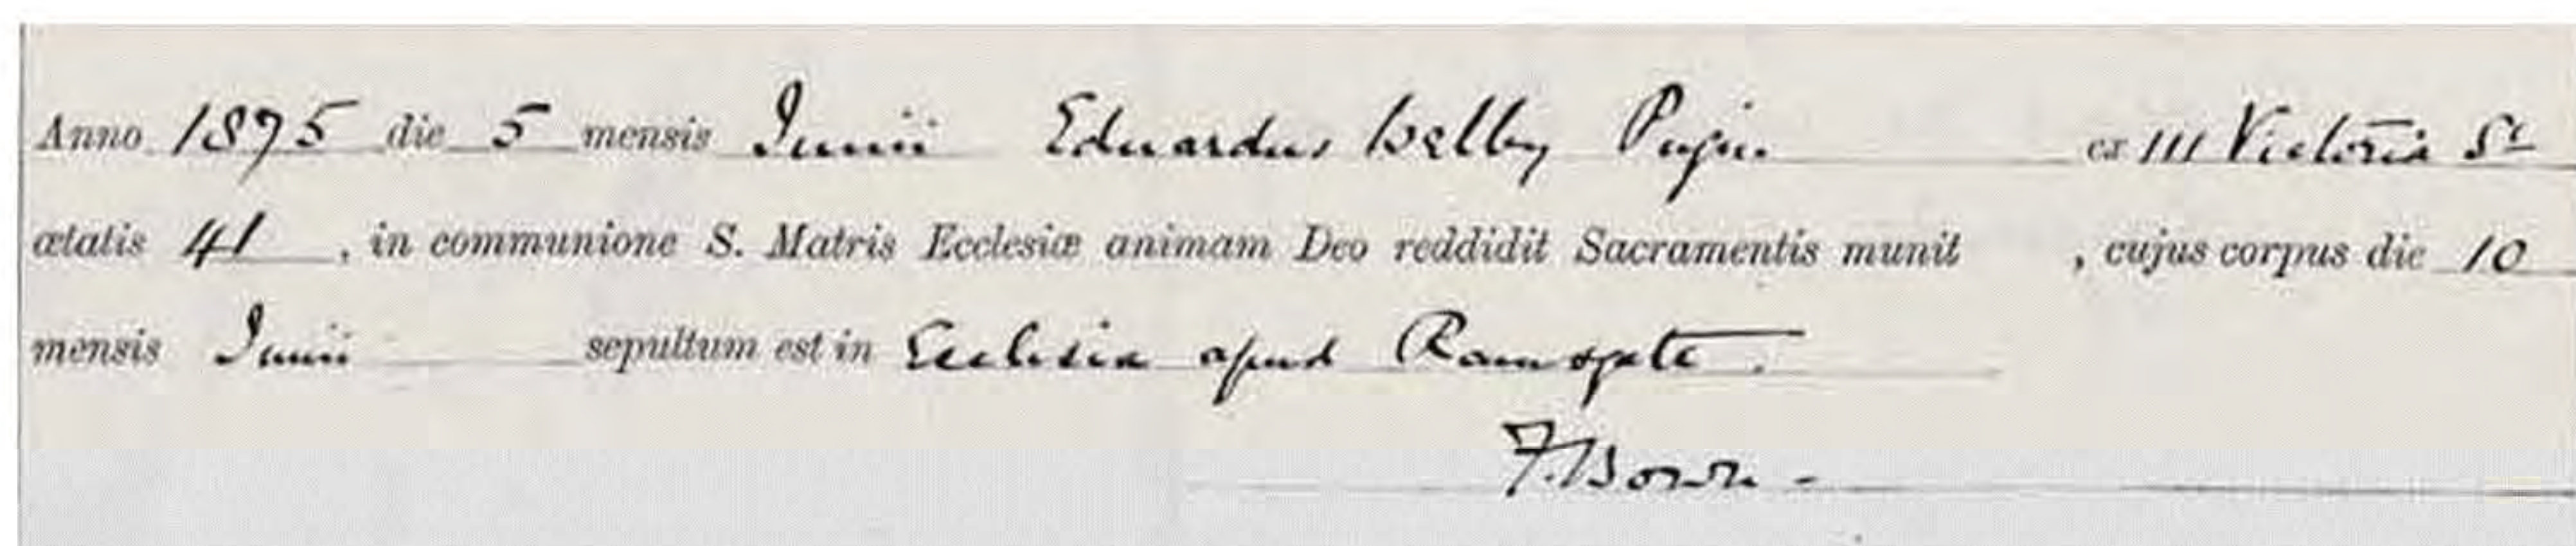 Anno 1875 die 5 mensis Junii Eduardus Welby Pugin ex 111 Victoria St
ætatis 41, in communione S. Matris Ecclesiæ animam Deo reddidit Sacramentis munit , cujus corpus die 10
mensis Junii sepultum est in Ecclesia apud Ramsgate.
F.